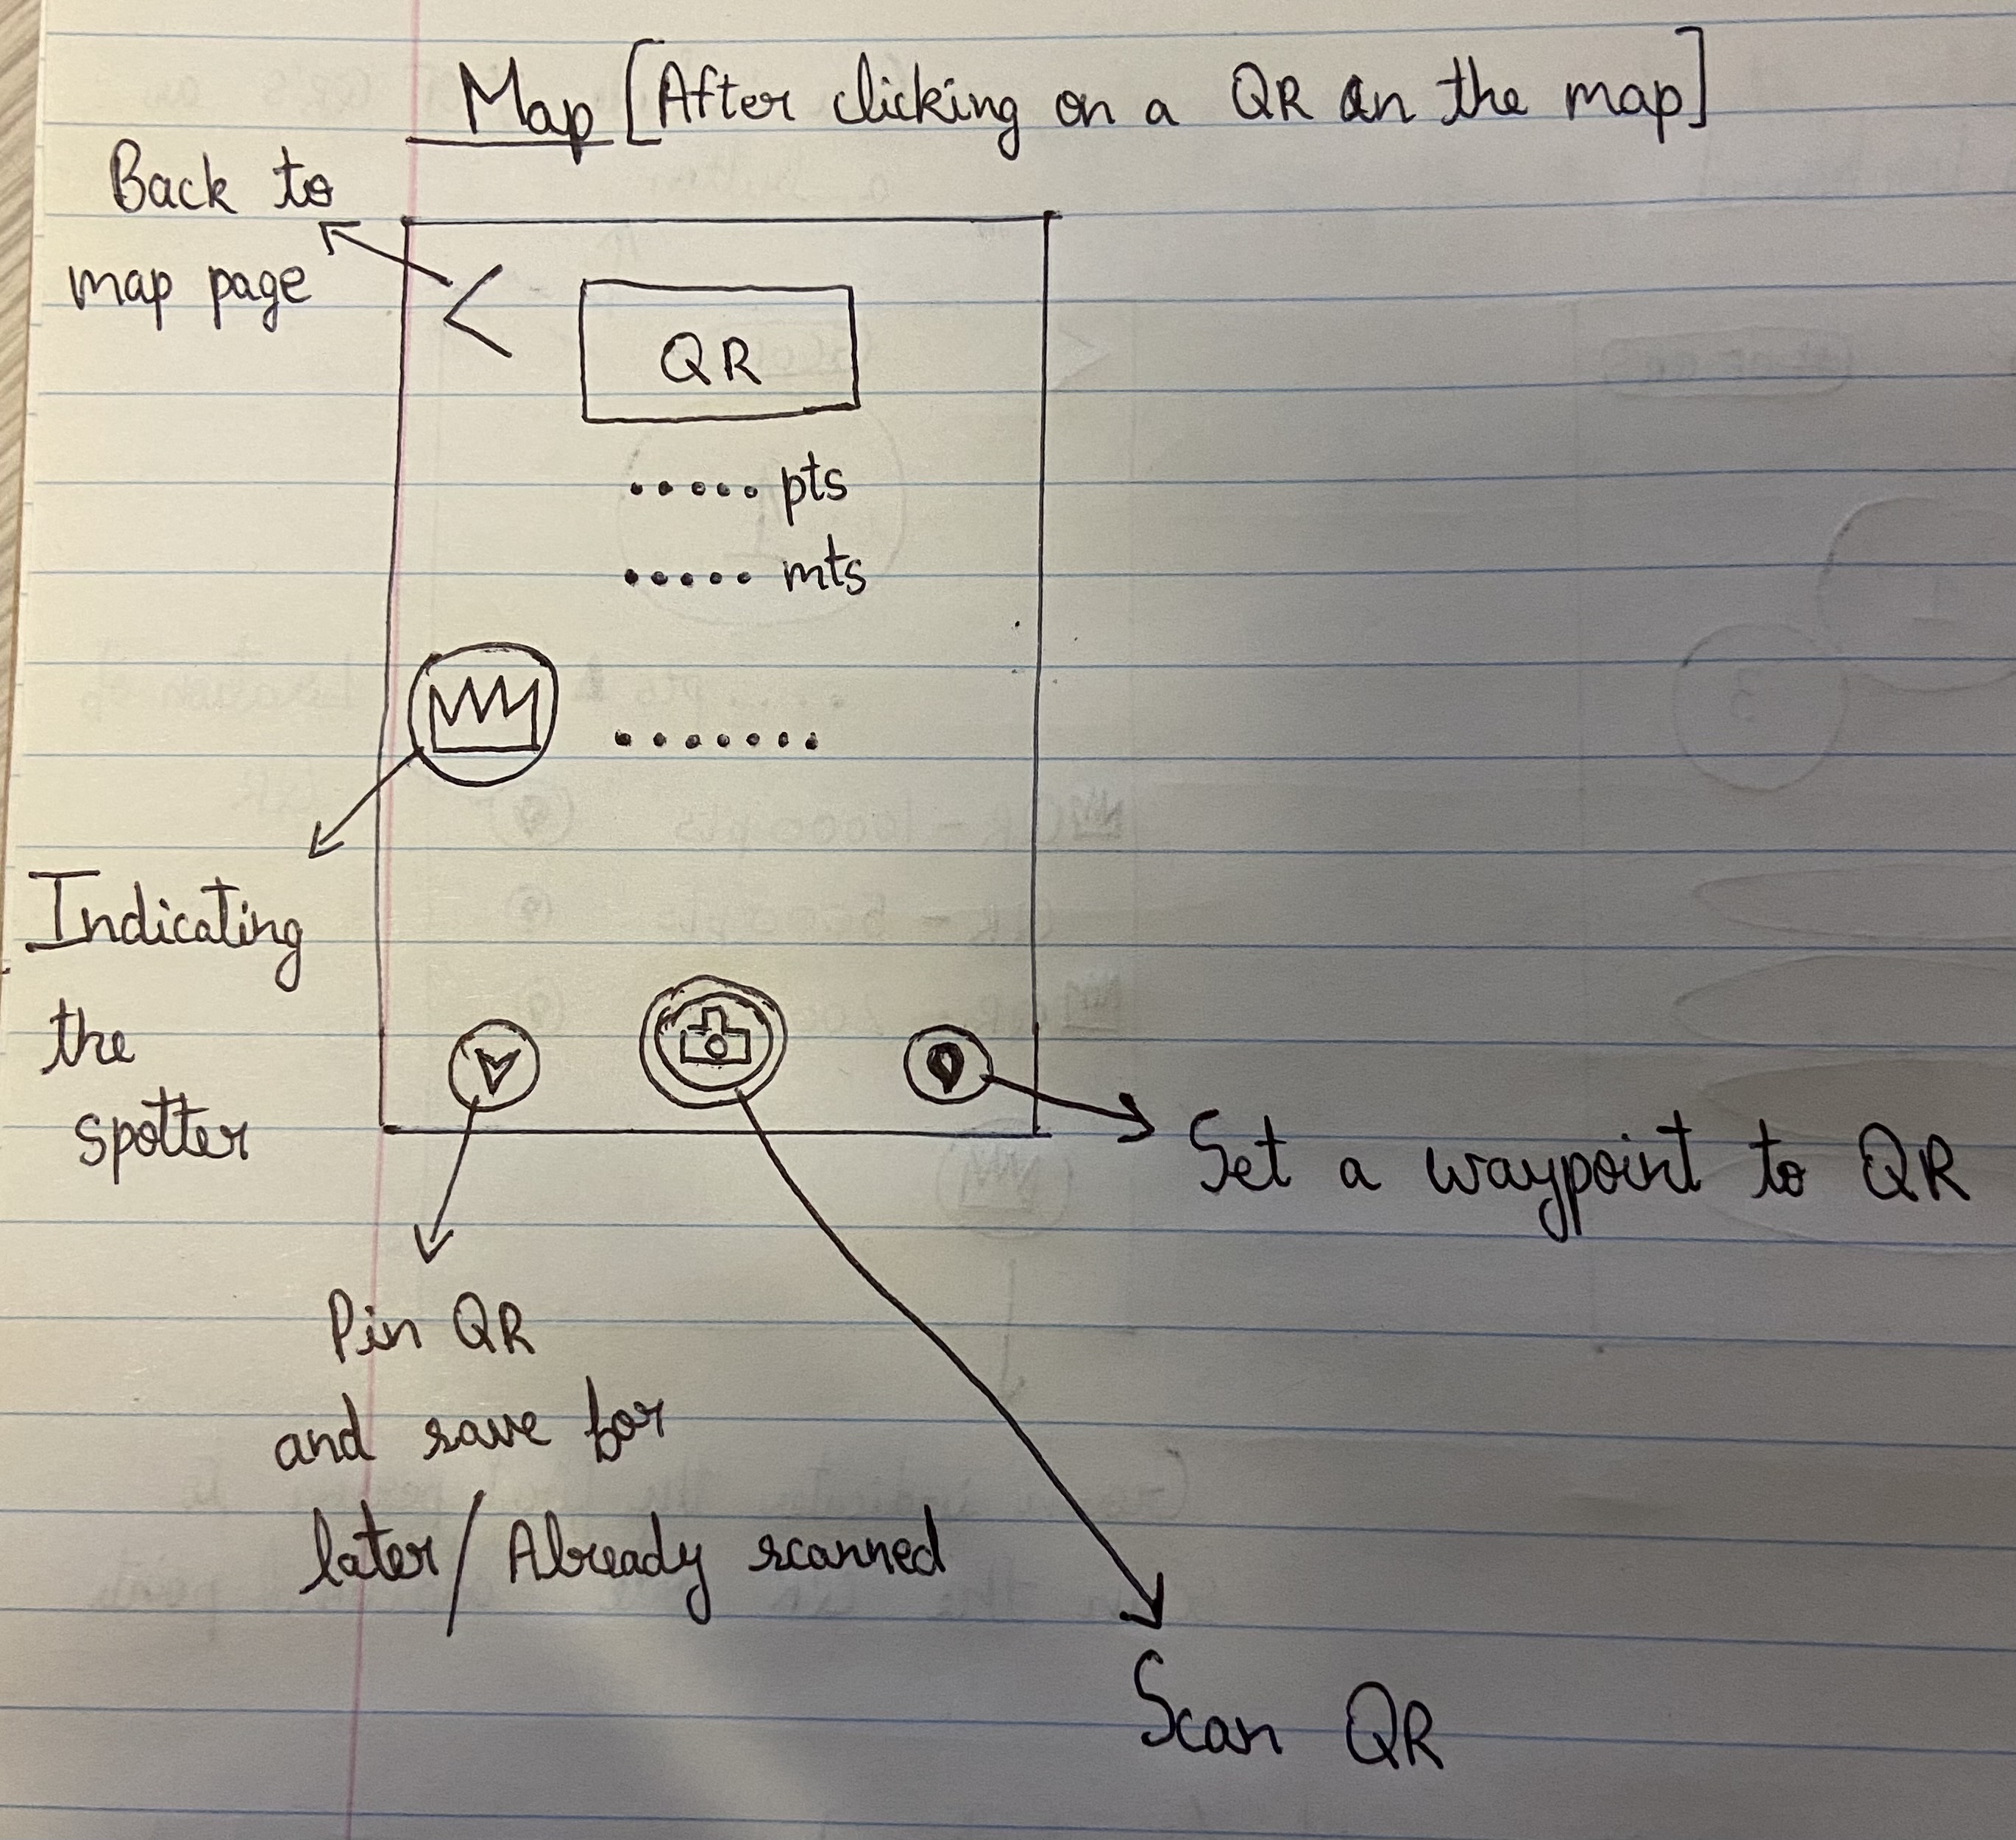 Map [After clicking on a QR on the map]
Back to
map page
<
QR
..... pts
..... mts
.......
Indicating
the
spotter
Set a waypoint to QR
Pin QR
and save for
later/Already scanned
Scan QR